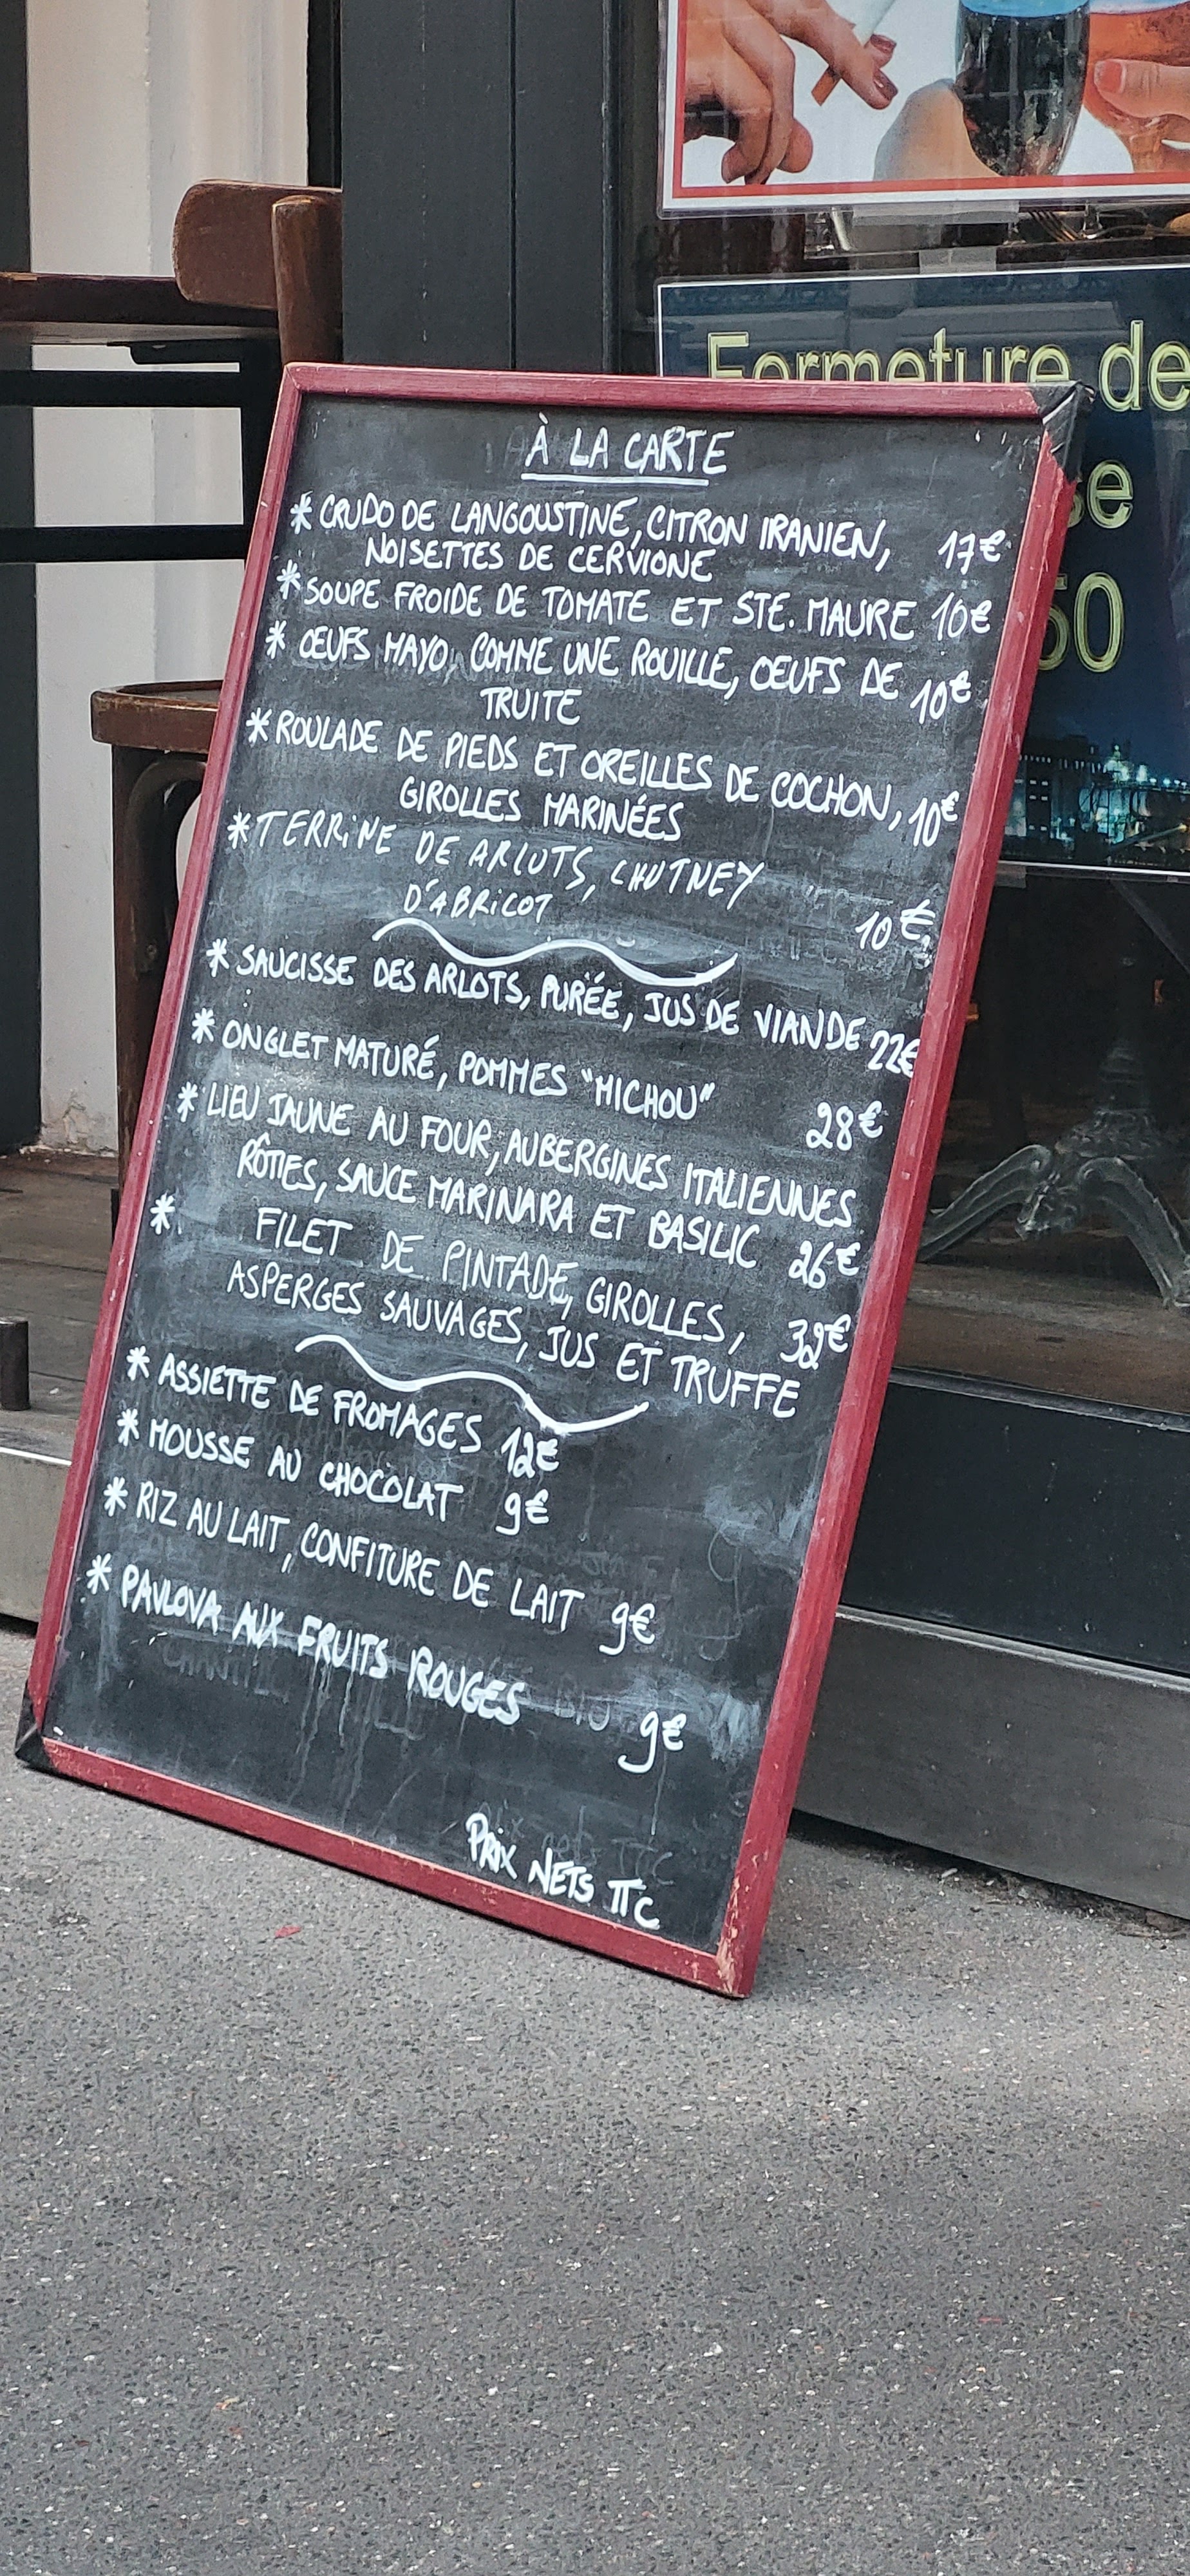 Fermeture de
se
50
À LA CARTE
* CRUDO DE LANGOUSTINE, CITRON IRANIEN, 17€
NOISETTES DE CERVIONE
* SOUPE FROIDE DE TOMATE ET STE. MAURE 10€
* ŒUFS MAYO, COMME UNE ROUILLE, ŒUFS DE 10€
TRUITE
* ROULADE DE PIEDS ET OREILLES DE COCHON, 10€
GIROLLES MARINÉES
* TERRINE DE ARLOTS, CHUTNEY
D'ABRICOT 10€
* SAUCISSE DES ARLOTS, PURÉE, JUS DE VIANDE 22€
* ONGLET MATURÉ, POMMES "MICHOU" 28€
* LIEU JAUNE AU FOUR, AUBERGINES ITALIENNES
RÔTIES, SAUCE MARINARA ET BASILIC 26€
* FILET DE PINTADE, GIROLLES, 32€
ASPERGES SAUVAGES, JUS ET TRUFFE
* ASSIETTE DE FROMAGES 12€
* MOUSSE AU CHOCOLAT 9€
* RIZ AU LAIT, CONFITURE DE LAIT 9€
* PAVLOVA AUX FRUITS ROUGES 9€
PRIX NETS TTC